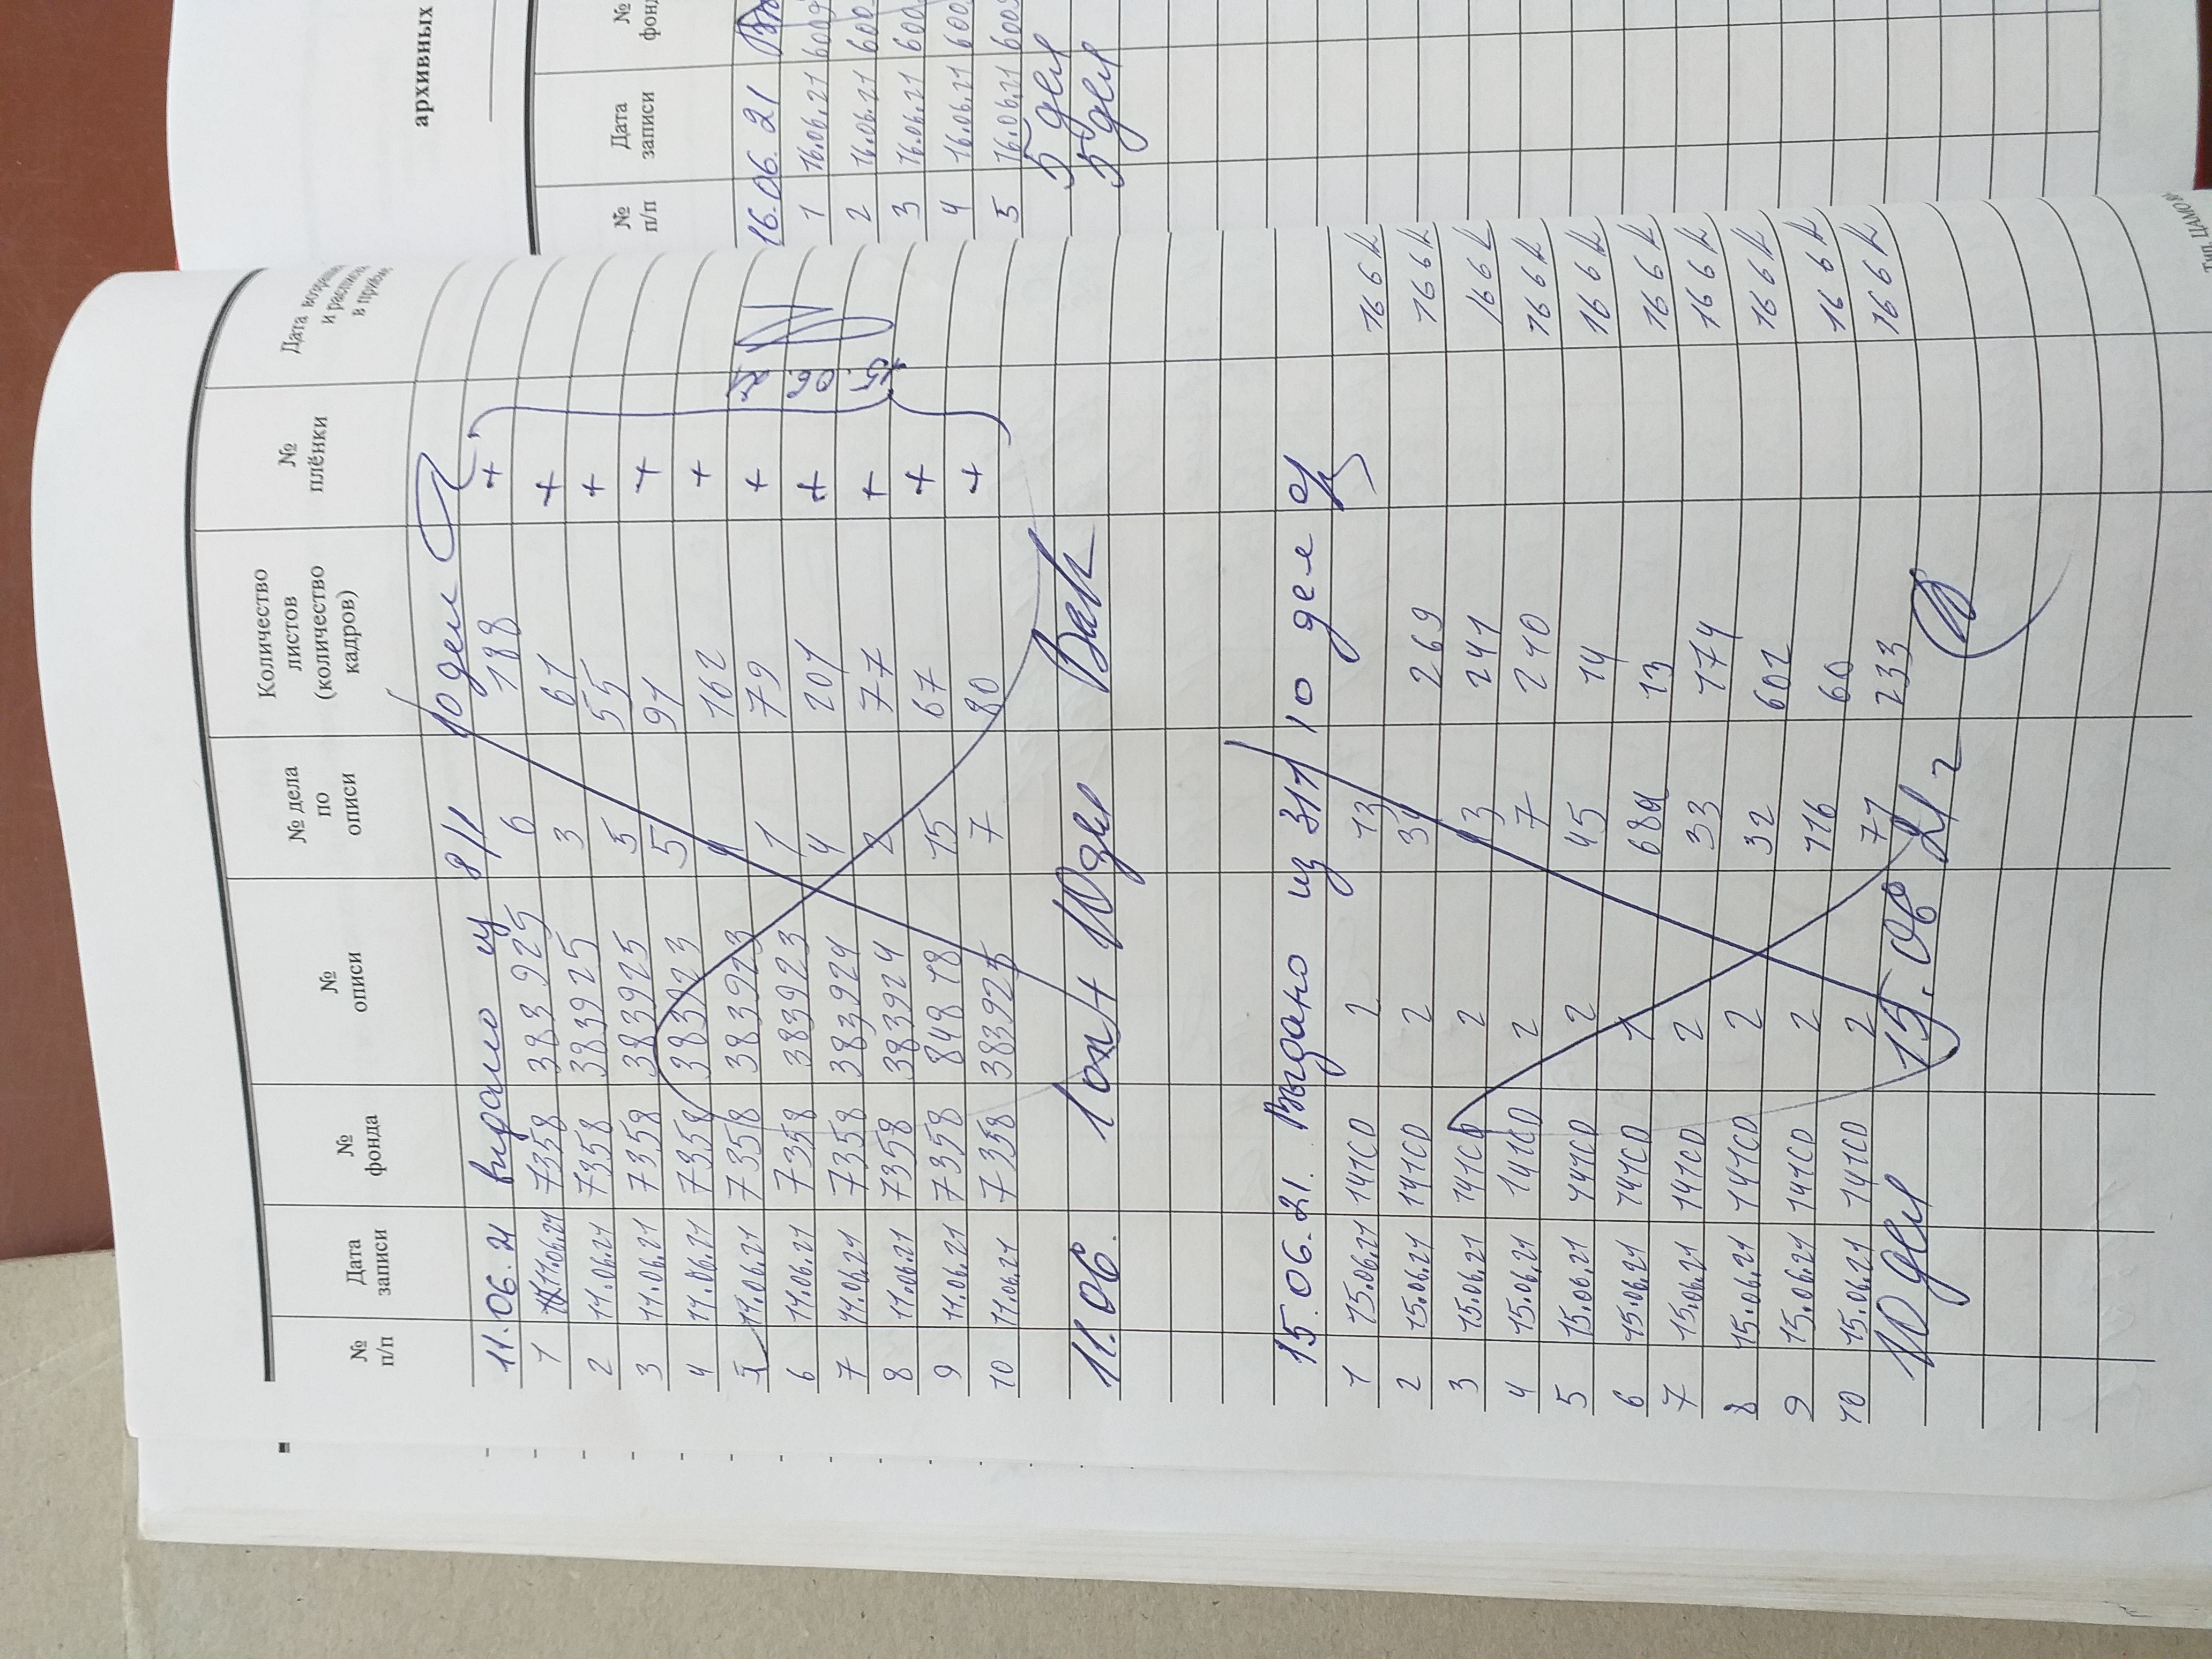 № п/п Дата записи № фонда № описи № дела по описи Количество листов (количество кадров) № плёнки Дата
11.06.21 выдано из 8/1 10 дел
1 11.06.21 7358 383925 6 188 +
2 11.06.21 7358 383925 3 61 +
3 11.06.21 7358 383925 5 55 +
4 11.06.21 7358 383923 5 91 +
5 11.06.21 7358 383923 1 162 +
6 11.06.21 7358 383923 1 79 +
7 11.06.21 7358 383924 4 201 +
8 11.06.21 7358 383924 2 77 +
9 11.06.21 7358 848 18 15 67 +
10 11.06.21 7358 383925 7 80 +
15.06.21
11.06. 1оп/ 10 дел
15.06.21. Выдано из 311 10 дел
1 15.06.21 141СD 2 13 166 к
2 15.06.21 141СD 2 31 269 166 к
3 15.06.21 141СD 2 3 241 166 к
4 15.06.21 141СD 2 7 210 166 к
5 15.06.21 141СD 2 45 14 166 к
6 15.06.21 141СD 1 13 166 к
7 15.06.21 141СD 2 33 174 166 к
8 15.06.21 141СD 2 32 602 166 к
9 15.06.21 141СD 2 116 60 166 к
10 15.06.21 141СD 2 71 233 166 к
10 дел 15.06 21 г
Тип. ЦАМО
архивных
№ п/п Дата записи № фонд
16.06.21
1 16.06.21 6009
2 16.06.21 600
3 16.06.21 600
4 16.06.21 600
5 16.06.21 6009
5 дел
5 дел